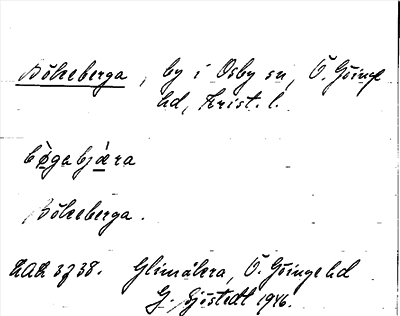 Bökeberga, by i Osby sn, Ö. Göinge
hd, Krist. l.
bögabjæra
Bökeberga.
Glimåkra, Ö. Göinge hd
G. Sjöstedt 1946.